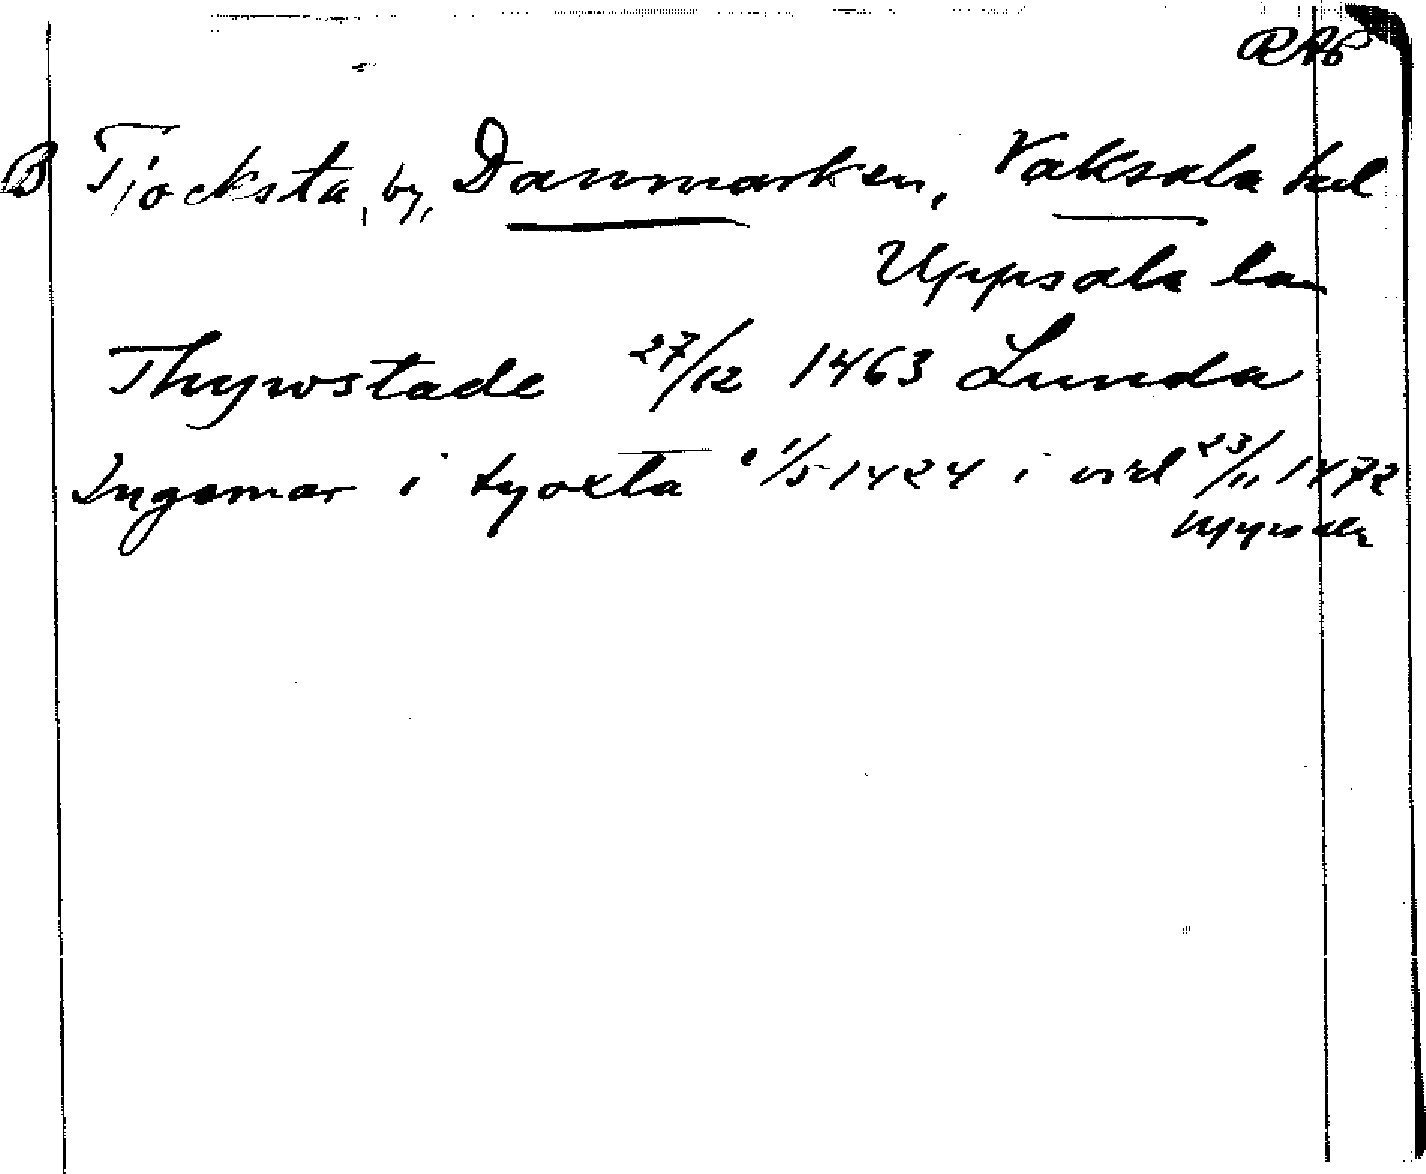 RAP
B Tjocksta, by, Danmarks sn, Vaksala hd
Uppsala län
Thywstade 27/12 1463 Lunda
Ingemar i tyoxta 1/5 1424 i vid 23/11 1472
Uppsala